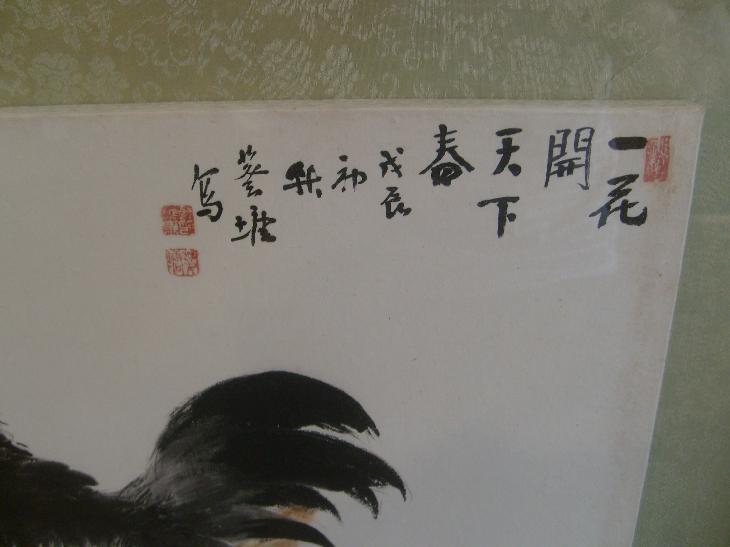 一花
開
天下
春
戊辰
初
秋
葵堰
寫